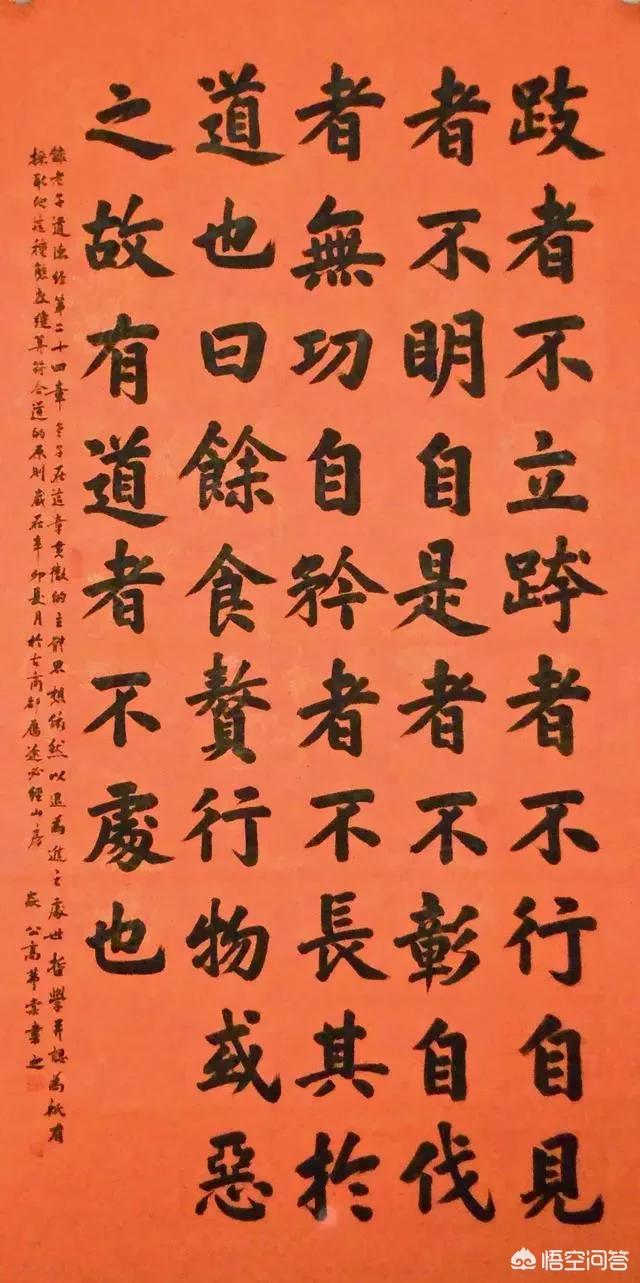 跂者不立跨者不行自見
者不明自是者不彰自伐
者無功自矜者不長其於
道也曰餘食贅行物或惡
之故有道者不處也
錄老子道德經第二十四章老子在這章貫徹的主體思想依然以退為進之處世哲學并認為祇有
採取他這種態度纔算符合道的原則歲在辛卯夏月於古商都 必經山房 公高 書之
悟空问答